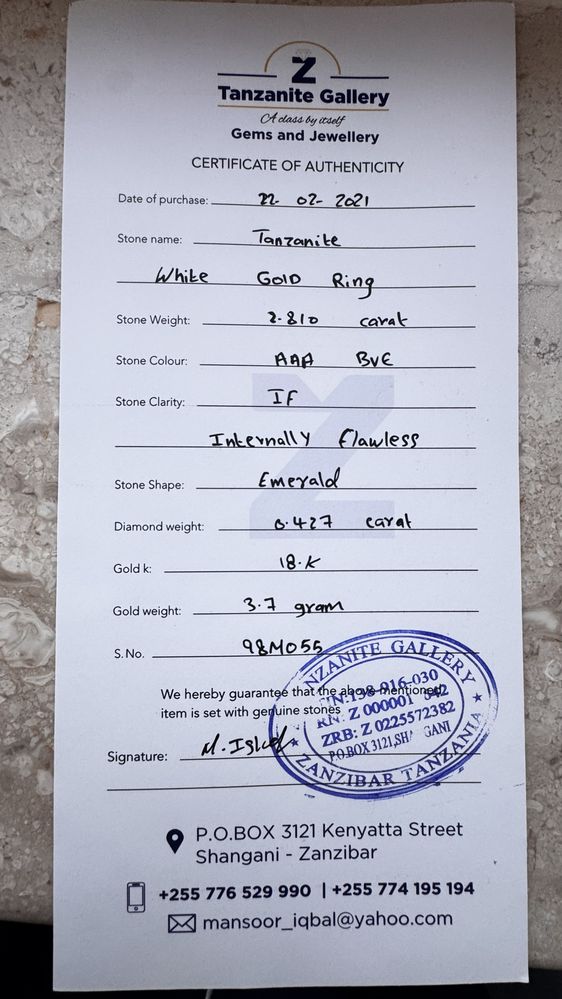 Z
Tanzanite Gallery
A class by itself
Gems and Jewellery
CERTIFICATE OF AUTHENTICITY
Date of purchase: 22- 02- 2021
Stone name: Tanzanite
White Gold Ring
Stone Weight: 2.810 carat
Stone Colour: AAA BVE
Stone Clarity: IF
Internally Flawless
Stone Shape: Emerald
Diamond weight: 0.427 carat
Gold k: 18.K
Gold weight: 3.7 gram
S. No. 98M055
We hereby guarantee that the above mentioned
item is set with genuine stones
Signature:
NZANITE GALLERY
138-916-030
RN: Z 000001 542
ZRB: Z 0225572382
P.O.BOX 3121,SHA GANI
★ ZANZIBAR TANZANIA ★
P.O.BOX 3121 Kenyatta Street
Shangani - Zanzibar
+255 776 529 990 | +255 774 195 194
mansoor_iqbal@yahoo.com